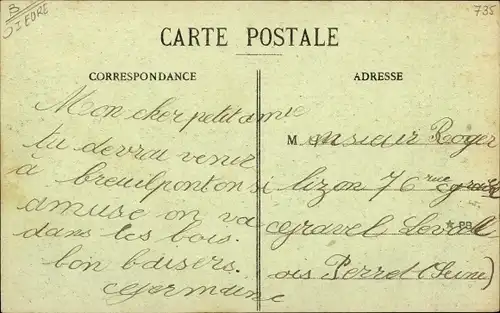 B
735
CARTE POSTALE
CORRESPONDANCE
ADRESSE
Mon cher petit amie
tu devrai venir
à breuilponton si
amuse on va
dans les bois.
bon baisers.
Germaine
Monsieur Roger
lizon 76 rue
gravel Levall
ois Perret (Seine)